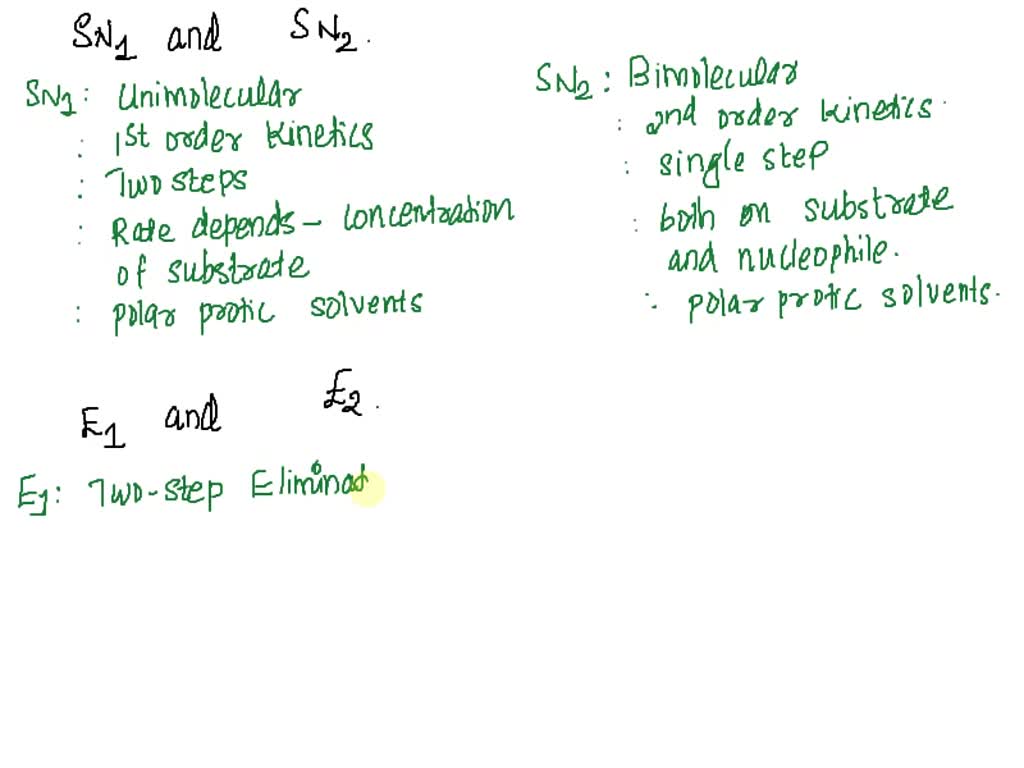 SN1 and SN2.
SN1: Unimolecular
: 1st order kinetics
: Two steps
: Rate depends - concentration
of substrate
: polar protic solvents
SN2: Bimolecular
: 2nd order kinetics.
: single step
: both on substrate
and nucleophile.
: polar protic solvents.
E1 and E2.
E1: Two-step Eliminat